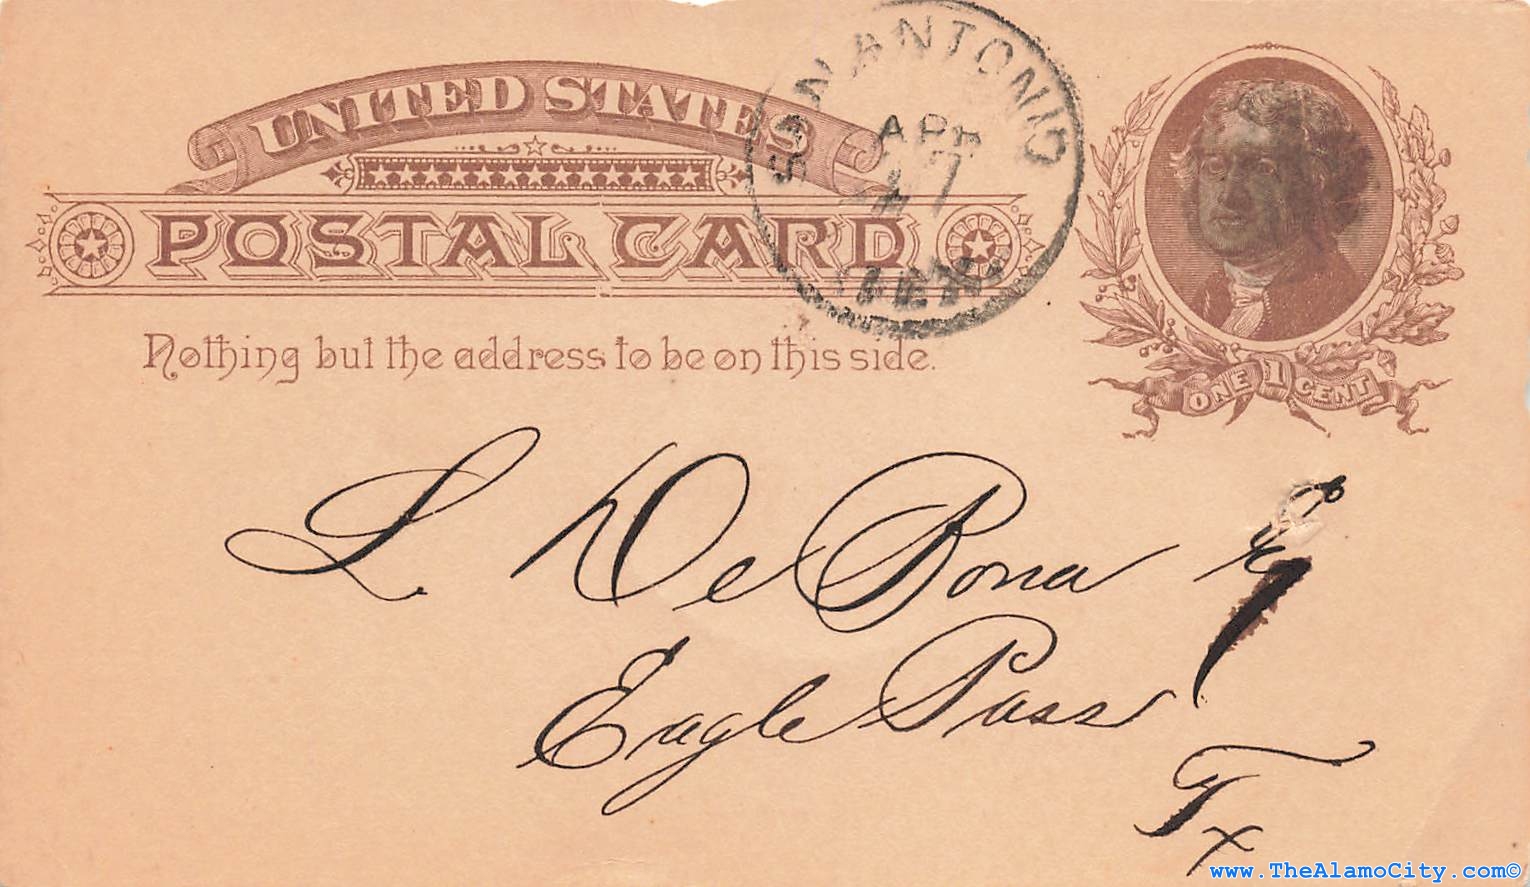 UNITED STATES
POSTAL CARD
SAN ANTONIO
APR
TEX.
Nothing but the address to be on this side.
ONE 1 CENT
L. De Bona
Eagle Pass
Tx
www.TheAlamoCity.com©